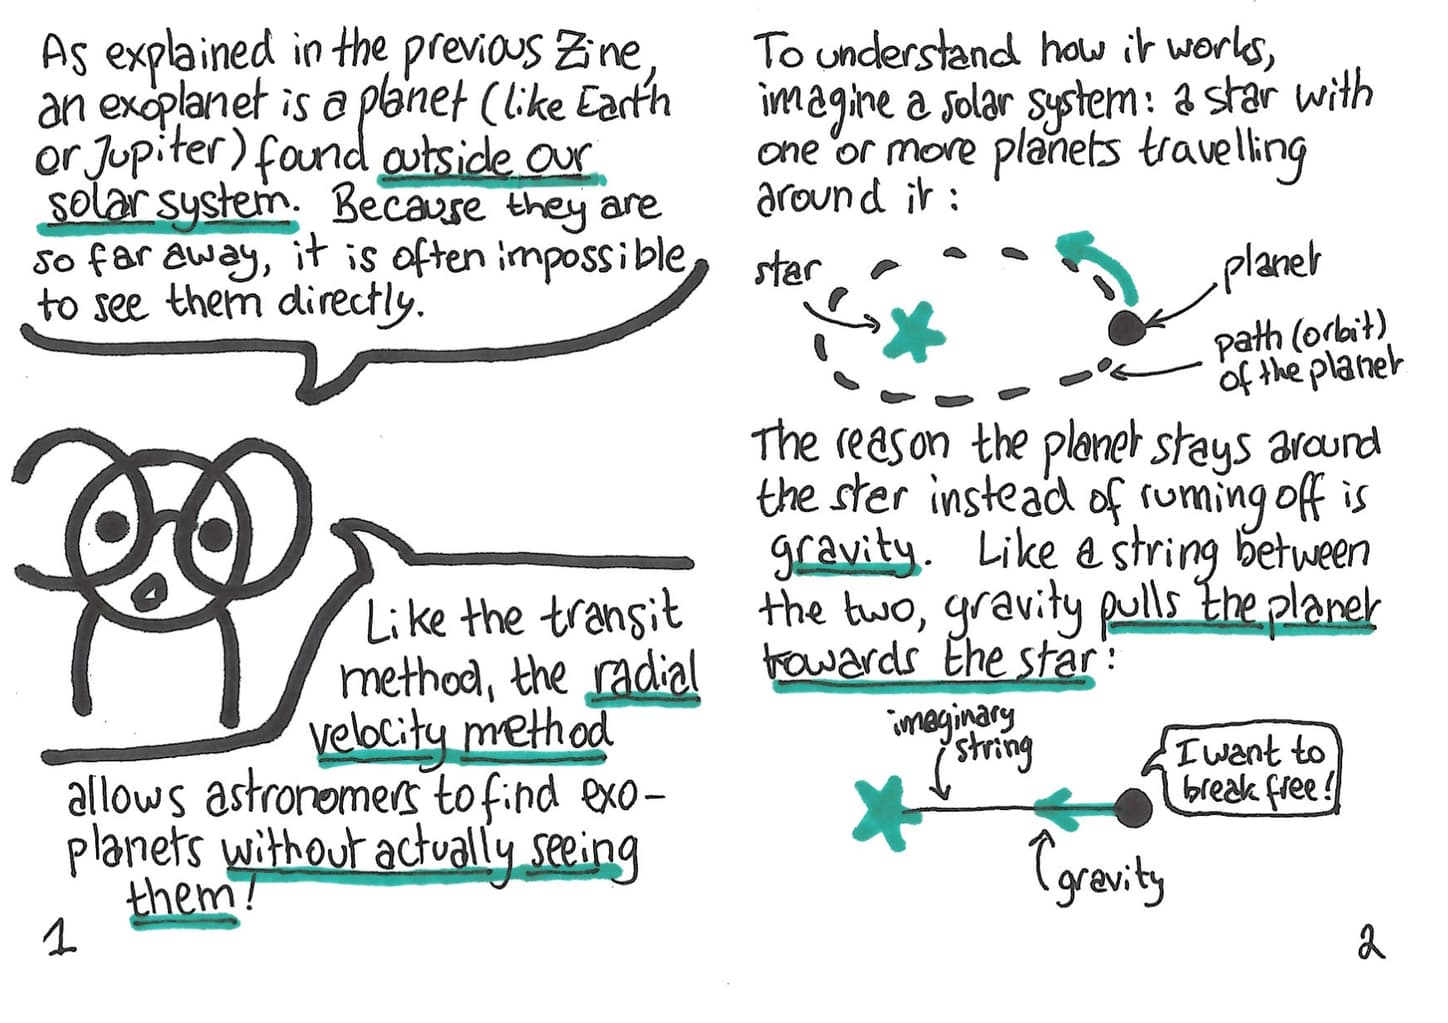 As explained in the previous Zine,
an exoplanet is a planet (like Earth
or Jupiter) found outside our
solar system. Because they are
so far away, it is often impossible
to see them directly.
Like the transit
method, the radial
velocity method
allows astronomers to find exo-
planets without actually seeing
them!
1
To understand how it works,
imagine a solar system: a star with
one or more planets travelling
around it:
star
planet
path (orbit)
of the planet
The reason the planet stays around
the ster instead of ruming off is
gravity. Like a string between
the two, gravity pulls the planet
towards the star:
imaginary
string
I want to
break free!
gravity
2